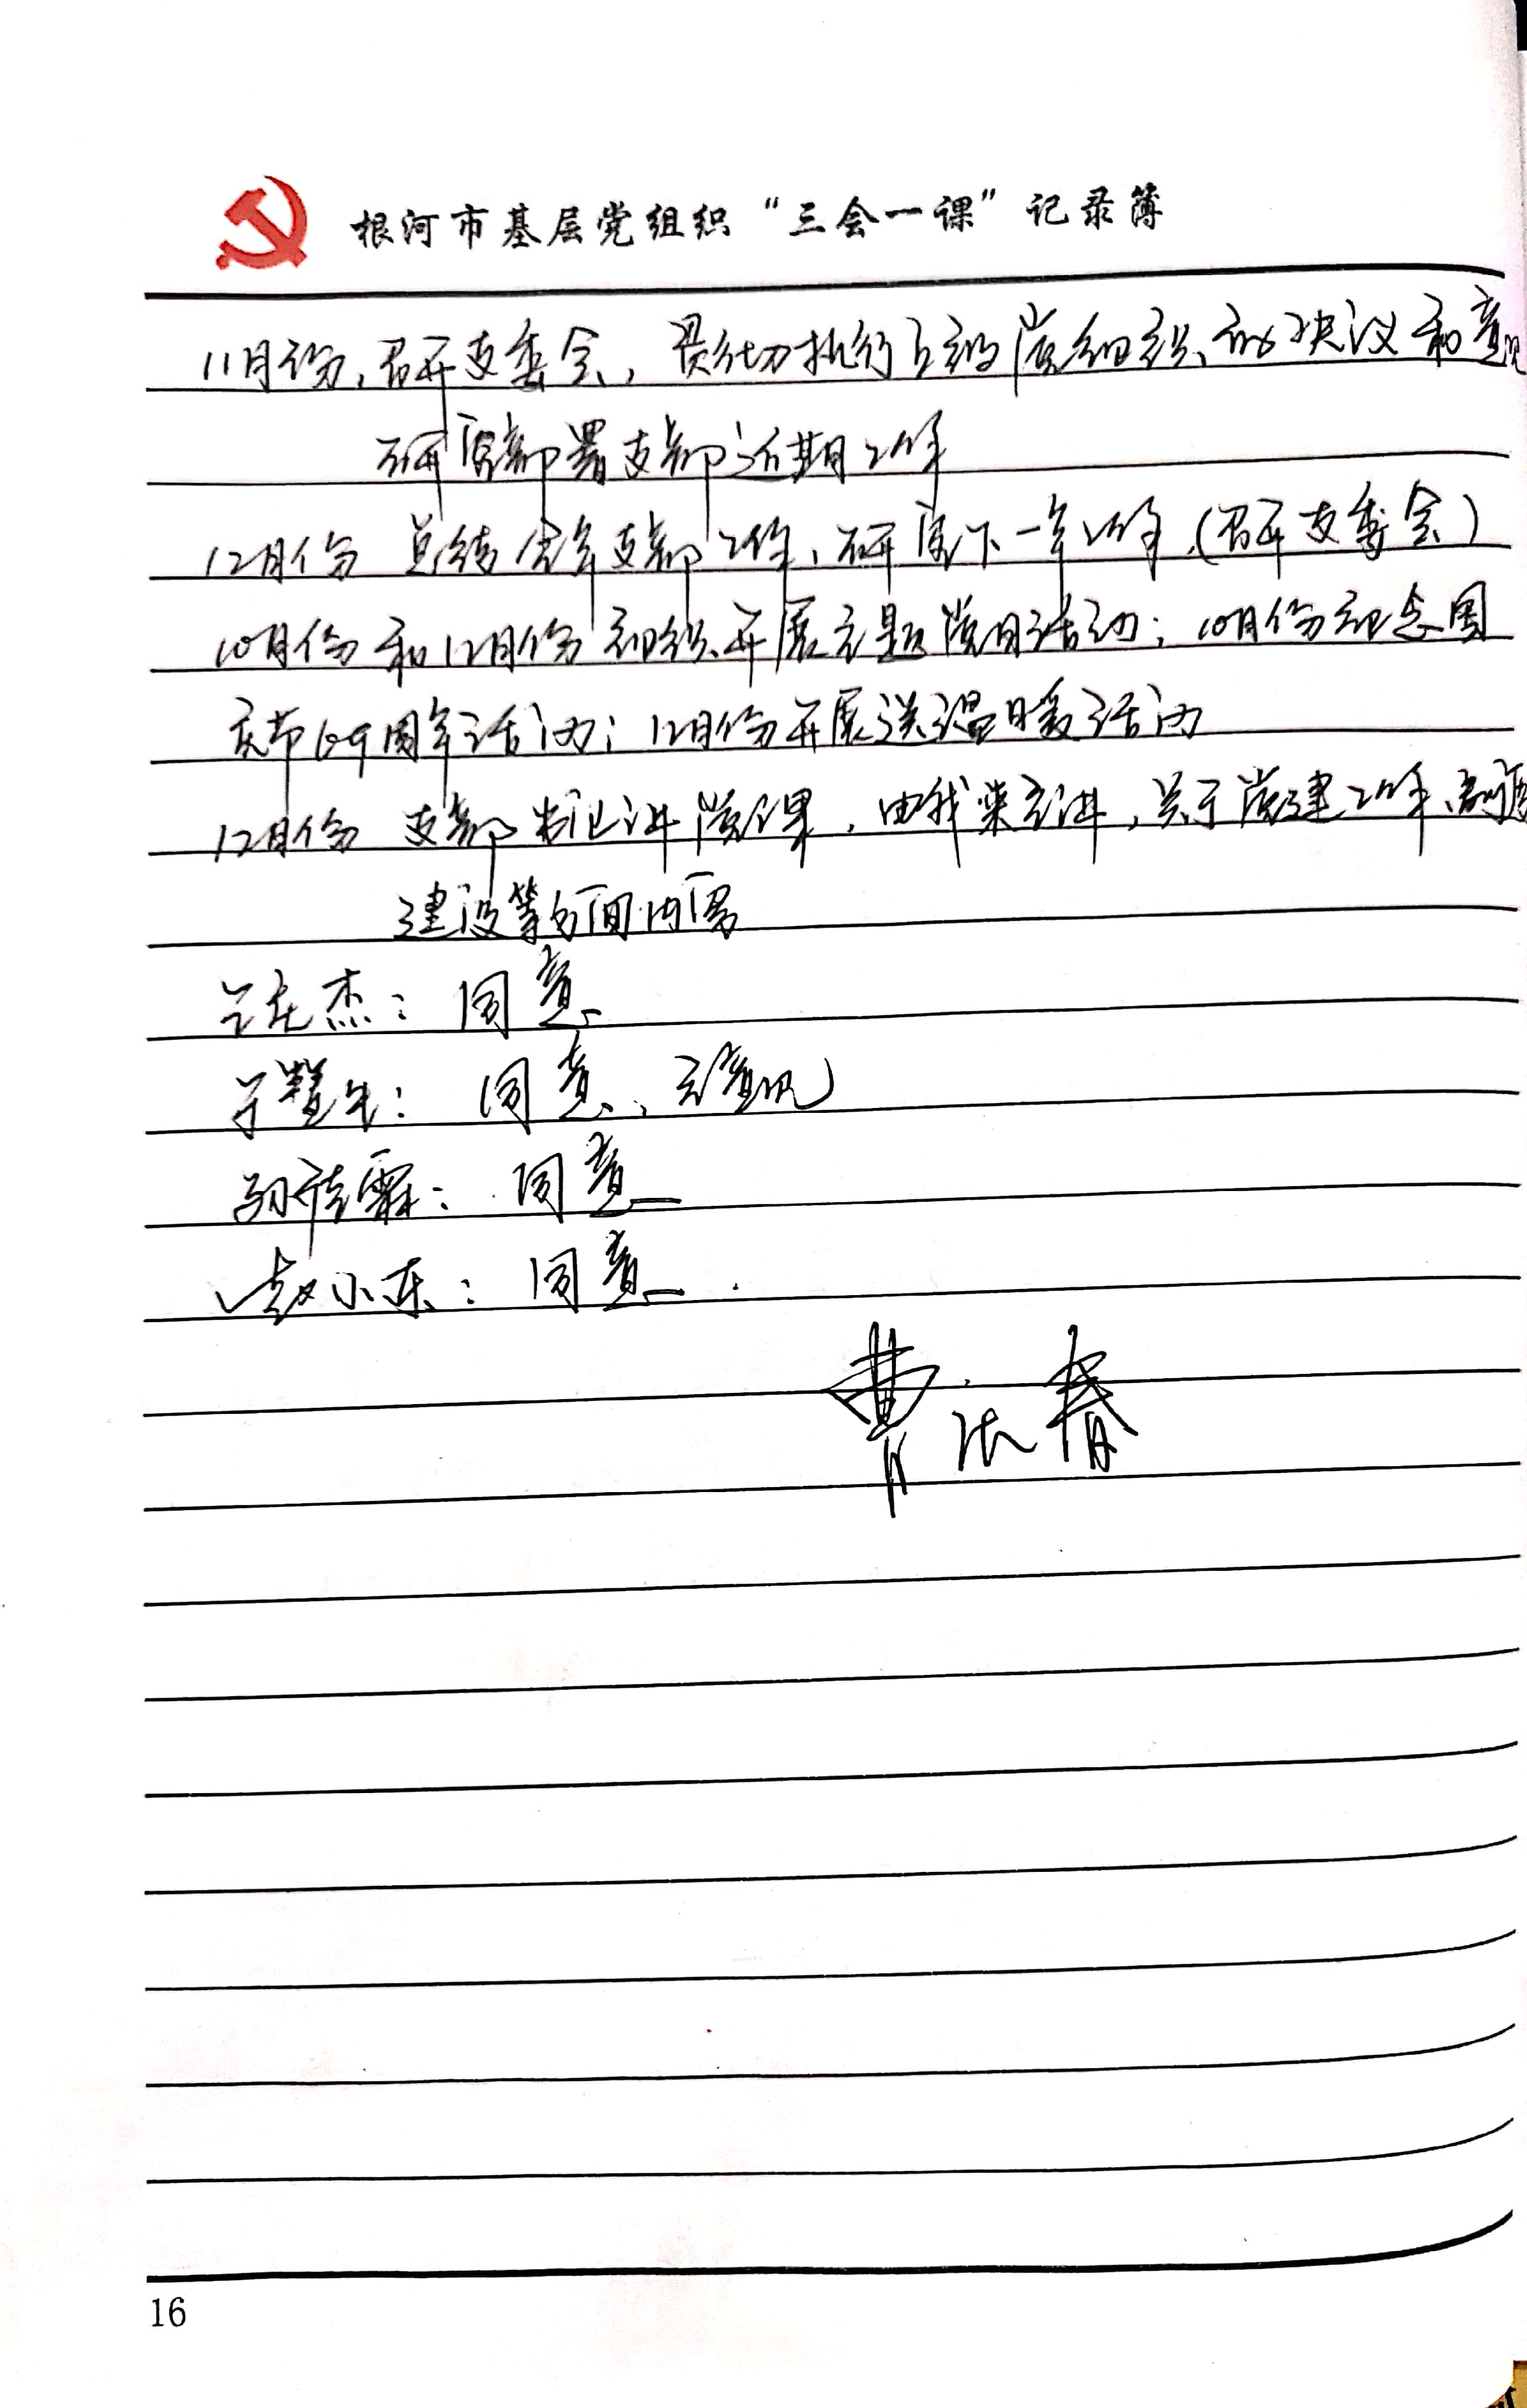 根河市基层党组织“三会一课”记录簿
11月份,召开支委会,贯彻执行上级党组织的决议和意见
研究部署支部近期工作
12月份 总结全年支部工作、研究下一年工作(召开支委会)
10月份和12月份组织开展主题党日活动;10月份纪念国
庆节69周年活动;12月份开展送温暖活动
12月份 支部书记讲党课,由我来主讲,关于党建工作、
建设等方面内容
杰:同意
于慧生:同意、无意见
孙霖:同意
赵小东:同意.
春
16